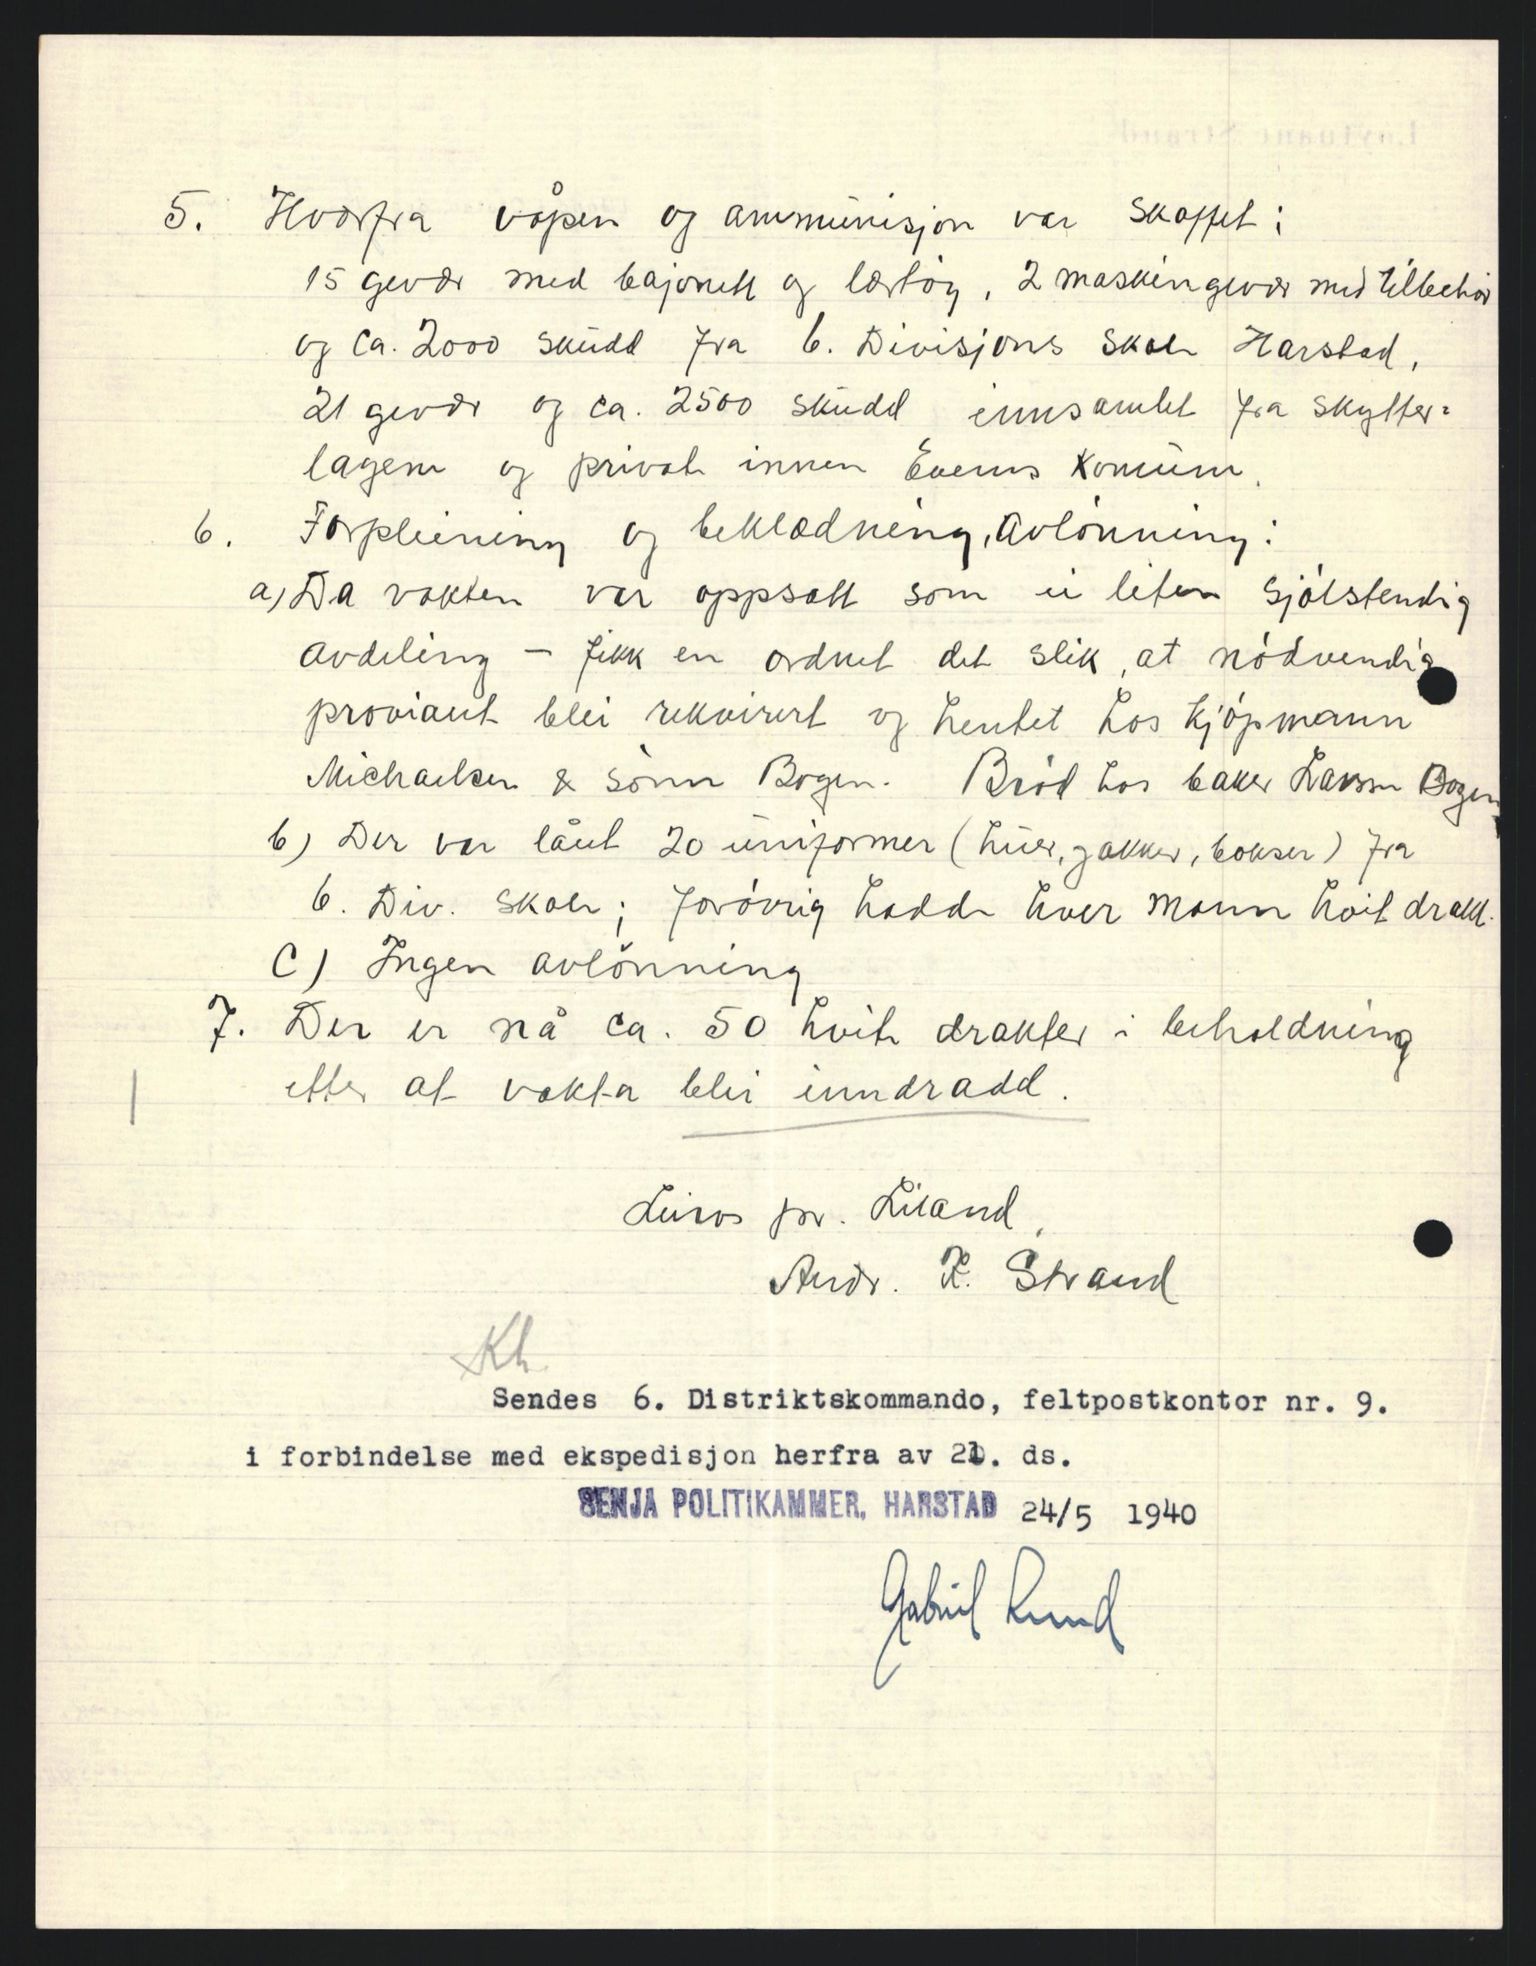 5. Hvorfra våpen og ammunisjon var skaffet:
15 gevær med bajonett og lærtøy, 2 maskingevær med tilbehør
og ca. 2000 skudd fra 6. Divisjons skole Harstad,
21 gevær og ca. 2500 skudd innsamlet fra skytter=
lagene og private innen Evenes Komune.
6. Forpleining og beklædning, avlønning:
a) Da vakten var oppsatt som ei liten sjølstendig
avdeling – fikk en ordnet det slik, at nødvendig
proviant blei rekvirert og hentet hos kjøpmann
Michaelsen & sønn Bogen. Brød hos baker Larsen Bogen
b) Der var lånt 20 uniformer (huer, jakker, bokser) fra
6. Div. skole; forøvrig hadde hver mann hvit drakt.
c) Ingen avlønning
7. Der er nå ca. 50 hvite drakter i beholdning
etter at vakta blei inndradd.
pr. Liland,
Andr. K. Strand
Kh.
Sendes 6. Distriktskommando, feltpostkontor nr. 9.
i forbindelse med ekspedisjon herfra av 21. ds.
SENJA POLITIKAMMER, HARSTAD 24/5 1940
Gabriel Lund